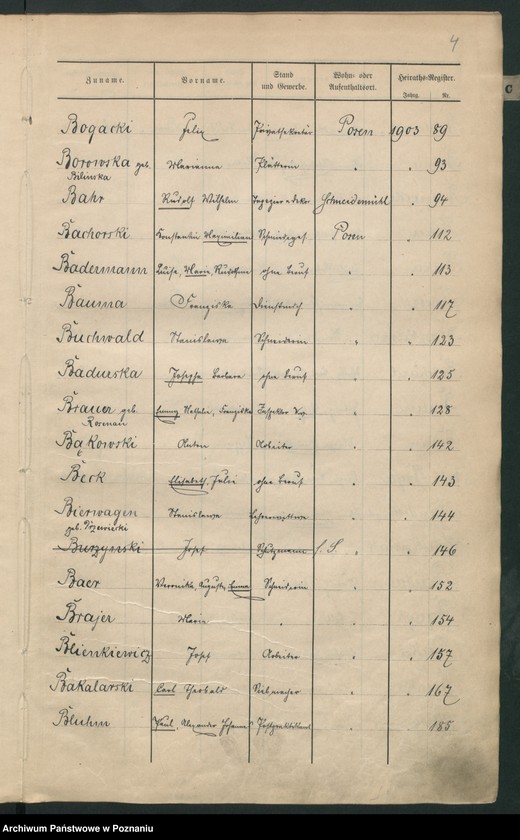 4
Zuname. Vorname. Stand und Gewerbe. Wohn- oder Aufenthaltsort. Heiraths-Register.
Jahrg. Nr.
Bogacki Felix Privatsekretär Posen 1903 89
Borowska geb. Marianna Plätterin " . 93
Bilinska
Bahr Rudolf Wilhelm Schneidemühl . 94
Bachorski Konstantin Maximilian Posen . 112
Badermann Luise, Marie, ohne Beruf " . 113
Bauma Franziska " . 117
Buchwald Stanislawa Schneiderin " . 123
Badurska Josepha Barbara ohne Beruf " . 125
Brauer geb. Emmy Franziska " . 128
Rosenau
Bąkowski Anton Arbeiter " . 142
Beck Elisabeth, Julie ohne Beruf " . 143
Bierwagen Stanislawa " . 144
geb.
Burzynski Josef Schutzmann " . 146
Baer Veronika, Auguste, Emma Schneiderin " . 152
Brajer Marie " " . 154
Blienkiewicz Josef Arbeiter " . 157
Bakalarski Carl Theobald " . 167
Bluhm Paul, Alexander Johannes " . 185
C
Archiwum Państwowe w Poznaniu